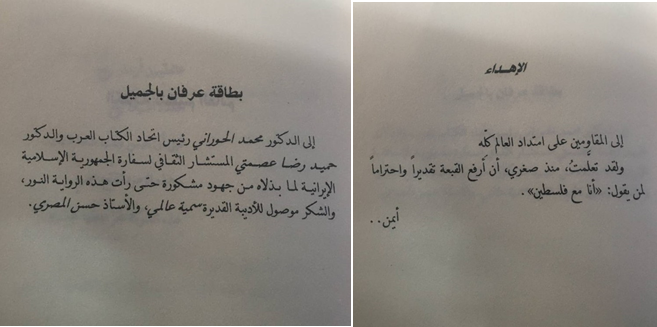 الإهداء
إلى المقاومين على امتداد العالم كلّه
ولقد تعلّمتُ، منذ صغري، أن أرفع القبعة تقديراً واحتراماً
لمن يقول: «أنا مع فلسطين».
أيمن..
بطاقة عرفان بالجميل
إلى الدكتور محمد الحوراني رئيس اتحاد الكتاب العرب والدكتور
حميد رضا عصمتي المستشار الثقافي لسفارة الجمهورية الإسلامية
الإيرانية لما بذلاه من جهود مشكورة حتى رأت هذه الرواية النور،
والشكر موصول للأديبة القديرة سمية عالمي، والأستاذ حسن المصري.